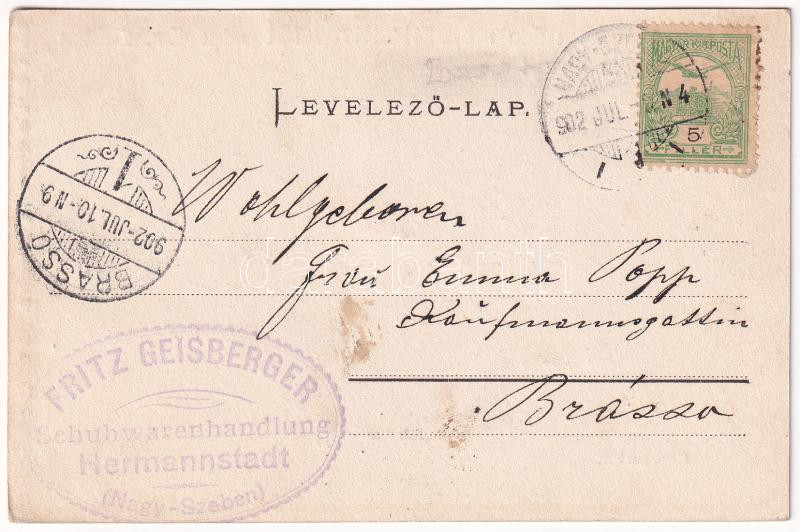 MAGYAR KIR. POSTA
5
FILLÉR
902 JUL. N 4
LEVELEZŐ-LAP.
1
902-JUL.10-N 9
BRASSÓ
Wohlgeboren
Frau Emma Popp
Kaufmannsgattin
Brásso
darabanth
FRITZ GEISBERGER
Schuhwarenhandlung
Hermannstadt
(Nagy-Szeben)